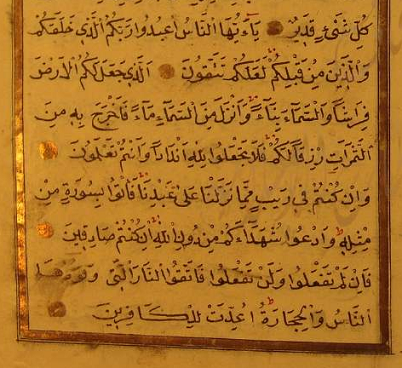 كُلِّ شَيْءٍ قَدِيرٌ يَاءَيُّهَا النَّاسُ اعْبُدُوا رَبَّكُمُ الَّذِي خَلَقَكُمْ
وَالَّذِينَ مِنْ قَبْلِكُمْ لَعَلَّكُمْ تَتَّقُونَ الَّذِي جَعَلَ لَكُمُ الْأَرْضَ
فِرَاشًا وَالسَّمَاءَ بِنَاءً وَأَنْزَلَ مِنَ السَّمَاءِ مَاءً فَأَخْرَجَ بِهِ مِنَ
الثَّمَرَاتِ رِزْقًا لَكُمْ فَلَا تَجْعَلُوا لِلَّهِ أَنْدَادًا وَأَنْتُمْ تَعْلَمُونَ
وَإِنْ كُنْتُمْ فِي رَيْبٍ مِمَّا نَزَّلْنَا عَلَى عَبْدِنَا فَأْتُوا بِسُورَةٍ مِنْ
مِثْلِهِ وَادْعُوا شُهَدَاءَكُمْ مِنْ دُونِ اللَّهِ إِنْ كُنْتُمْ صَادِقِينَ
فَإِنْ لَمْ تَفْعَلُوا وَلَنْ تَفْعَلُوا فَاتَّقُوا النَّارَ الَّتِي وَقُودُهَا
النَّاسُ وَالْحِجَارَةُ أُعِدَّتْ لِلْكَافِرِينَ